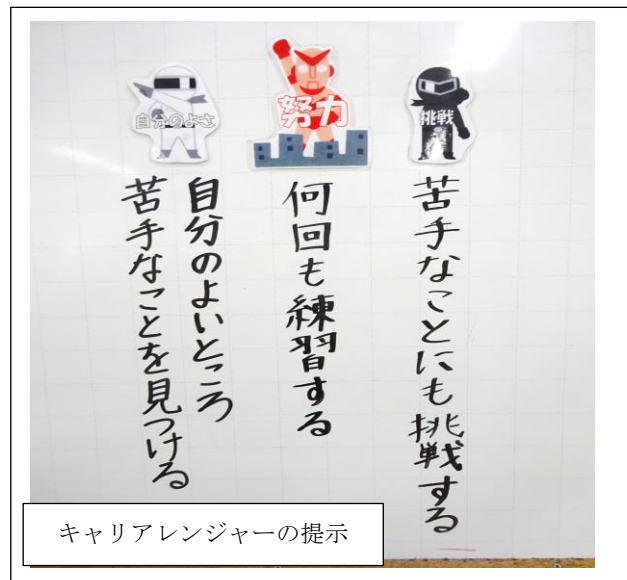 挑戦
苦手なことにも挑戦する
努力
何回も練習する
自分のよさ
自分のよいところ
苦手なことを見つける
キャリアレンジャーの提示